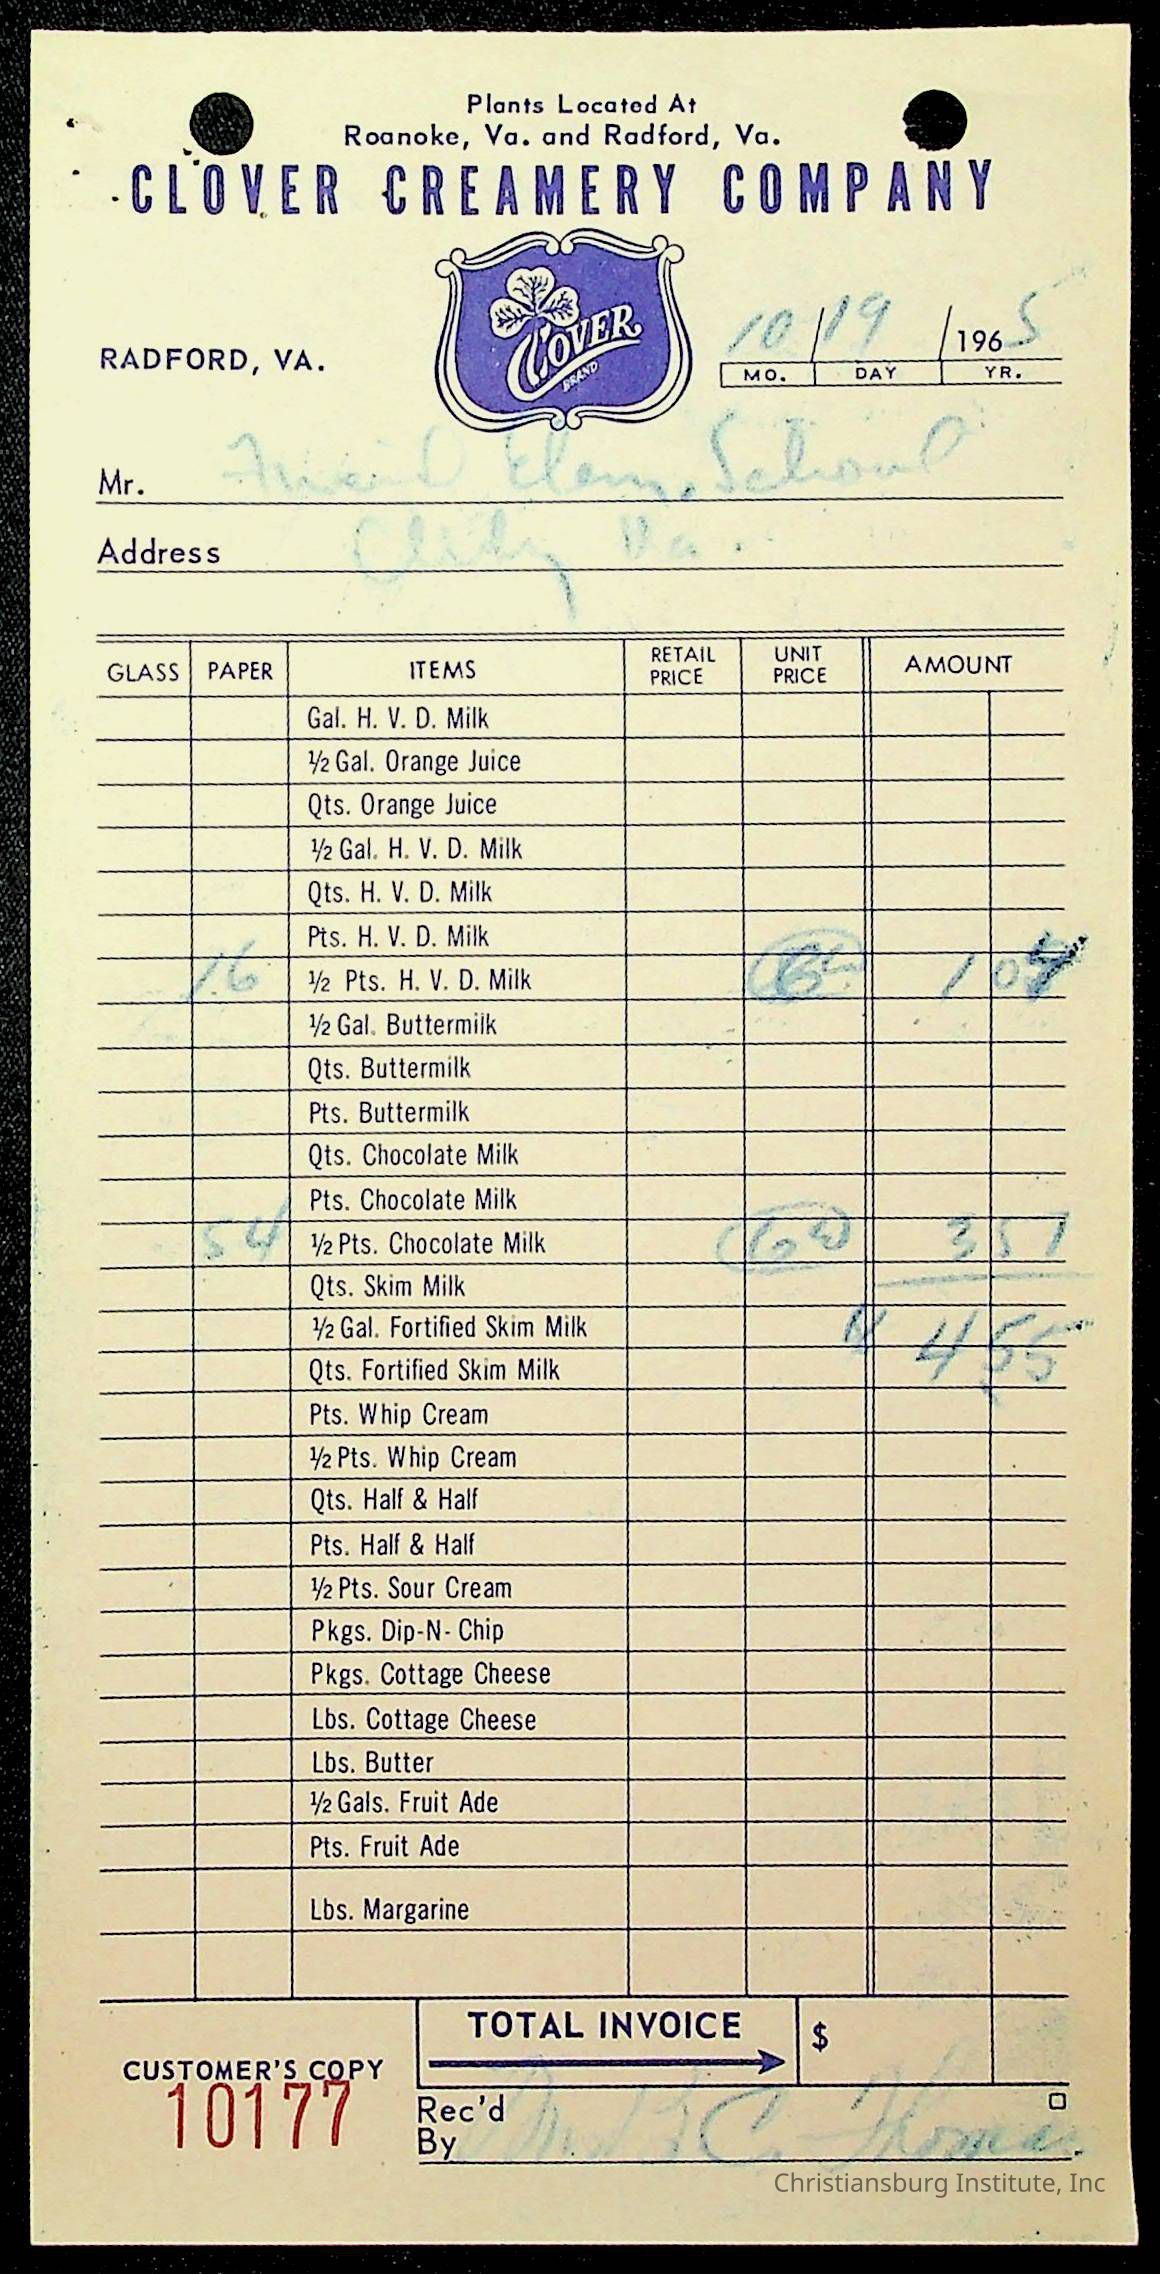 Plants Located At
Roanoke, Va. and Radford, Va.
CLOVER CREAMERY COMPANY
CLOVER
BRAND
RADFORD, VA.
10/19/1965
MO. DAY YR.
Mr. Friend Elem. School
Address Va.
GLASS PAPER ITEMS RETAIL PRICE UNIT PRICE AMOUNT
Gal. H. V. D. Milk
½ Gal. Orange Juice
Qts. Orange Juice
½ Gal. H. V. D. Milk
Qts. H. V. D. Milk
Pts. H. V. D. Milk
16 ½ Pts. H. V. D. Milk 1 04
½ Gal. Buttermilk
Qts. Buttermilk
Pts. Buttermilk
Qts. Chocolate Milk
Pts. Chocolate Milk
54 ½ Pts. Chocolate Milk 3 51
Qts. Skim Milk
½ Gal. Fortified Skim Milk 4 55
Qts. Fortified Skim Milk
Pts. Whip Cream
½ Pts. Whip Cream
Qts. Half & Half
Pts. Half & Half
½ Pts. Sour Cream
Pkgs. Dip-N-Chip
Pkgs. Cottage Cheese
Lbs. Cottage Cheese
Lbs. Butter
½ Gals. Fruit Ade
Pts. Fruit Ade
Lbs. Margarine
TOTAL INVOICE $
CUSTOMER'S COPY
10177
Rec'd
By C. Thomas
Christiansburg Institute, Inc